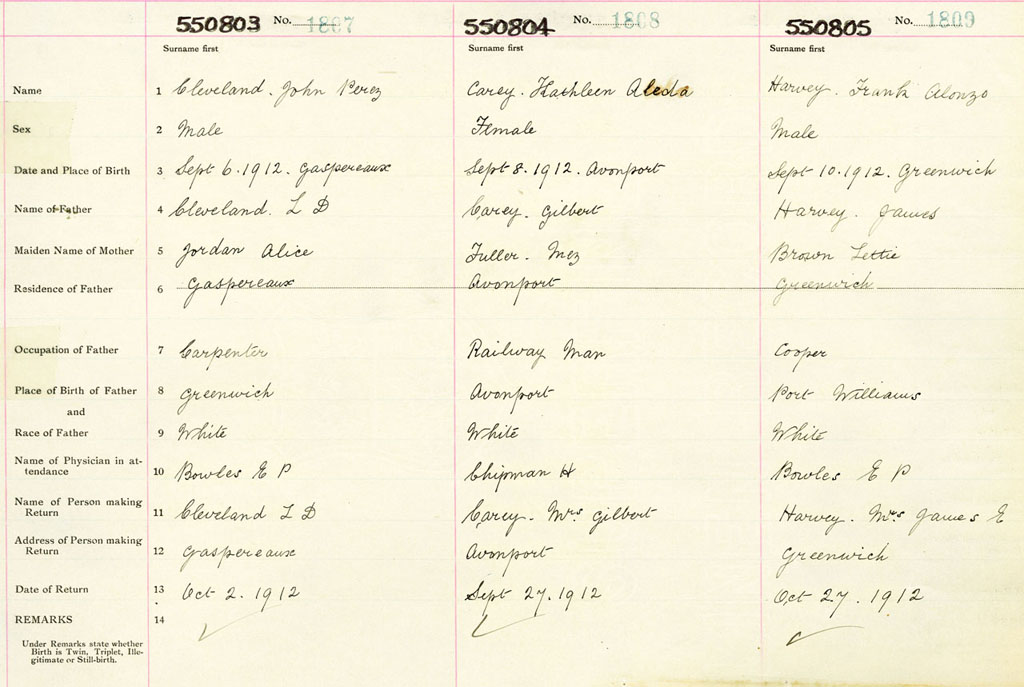 550803 No. 1807 550804 No. 1808 550805 No. 1809
Surname first Surname first Surname first
Name 1 Cleveland. John Perez Carey. Kathleen Aleda Harvey. Frank Alonzo
Sex 2 Male Female Male
Date and Place of Birth 3 Sept 6. 1912. Gaspereaux Sept 8. 1912. Avonport Sept 10. 1912. Greenwich
Name of Father 4 Cleveland. L D Carey. Gilbert Harvey. James
Maiden Name of Mother 5 Jordan Alice Fuller. Brown Lettie
Residence of Father 6 Gaspereaux Avonport Greenwich
Occupation of Father 7 Carpenter Railway Man Cooper
Place of Birth of Father 8 Greenwich Avonport Port Williams
and
Race of Father 9 White White White
Name of Physician in at-
tendance 10 Bowles E P Chipman H Bowles E P
Name of Person making
Return 11 Cleveland L D Carey. Mrs. Gilbert Harvey. Mrs James E
Address of Person making
Return 12 Gaspereaux Avonport Greenwich
Date of Return 13 Oct 2. 1912 Sept 27. 1912 Oct 27. 1912
REMARKS 14
Under Remarks state whether
Birth is Twin, Triplet, Ille-
gitimate or Still-birth.